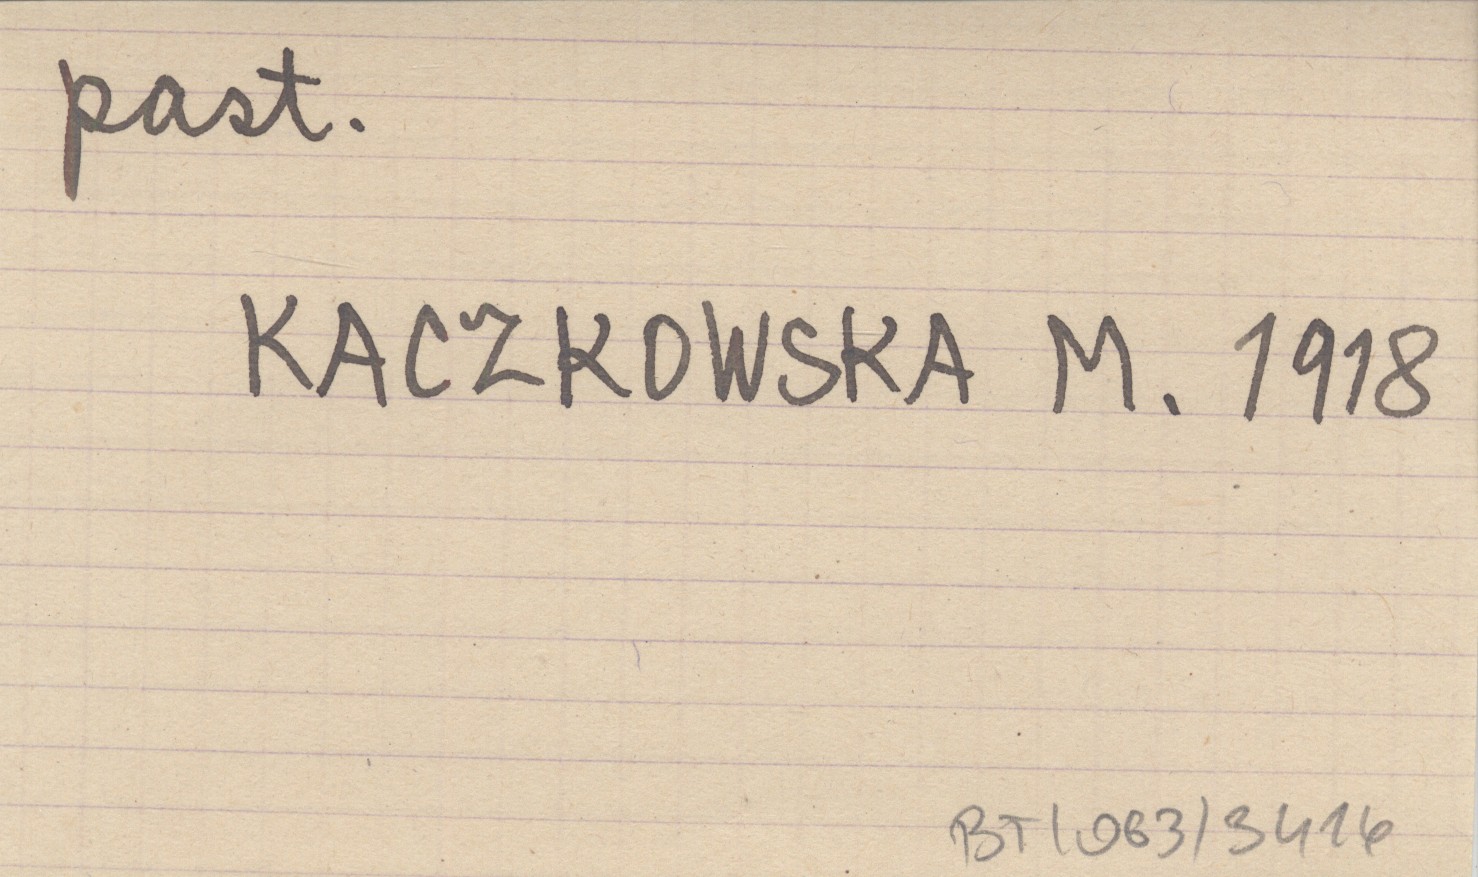 past.
KACZKOWSKA M. 1918
BT/063/3416